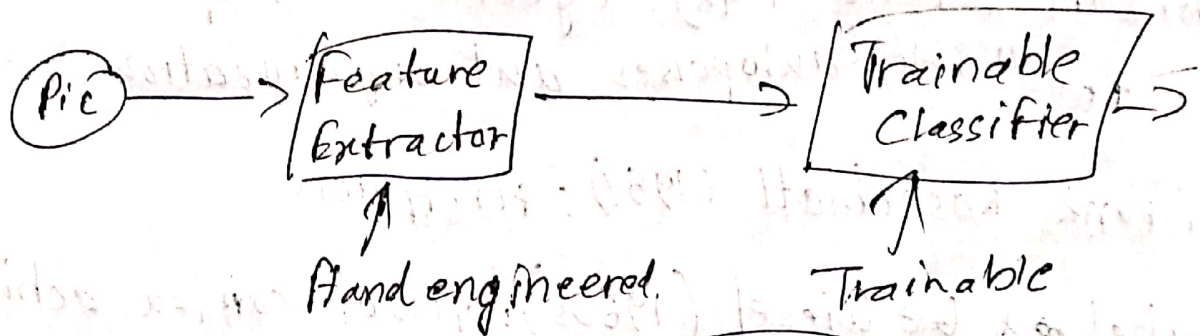 Pic
Feature
Extractor
Trainable
Classifier
Hand engineered.
Trainable